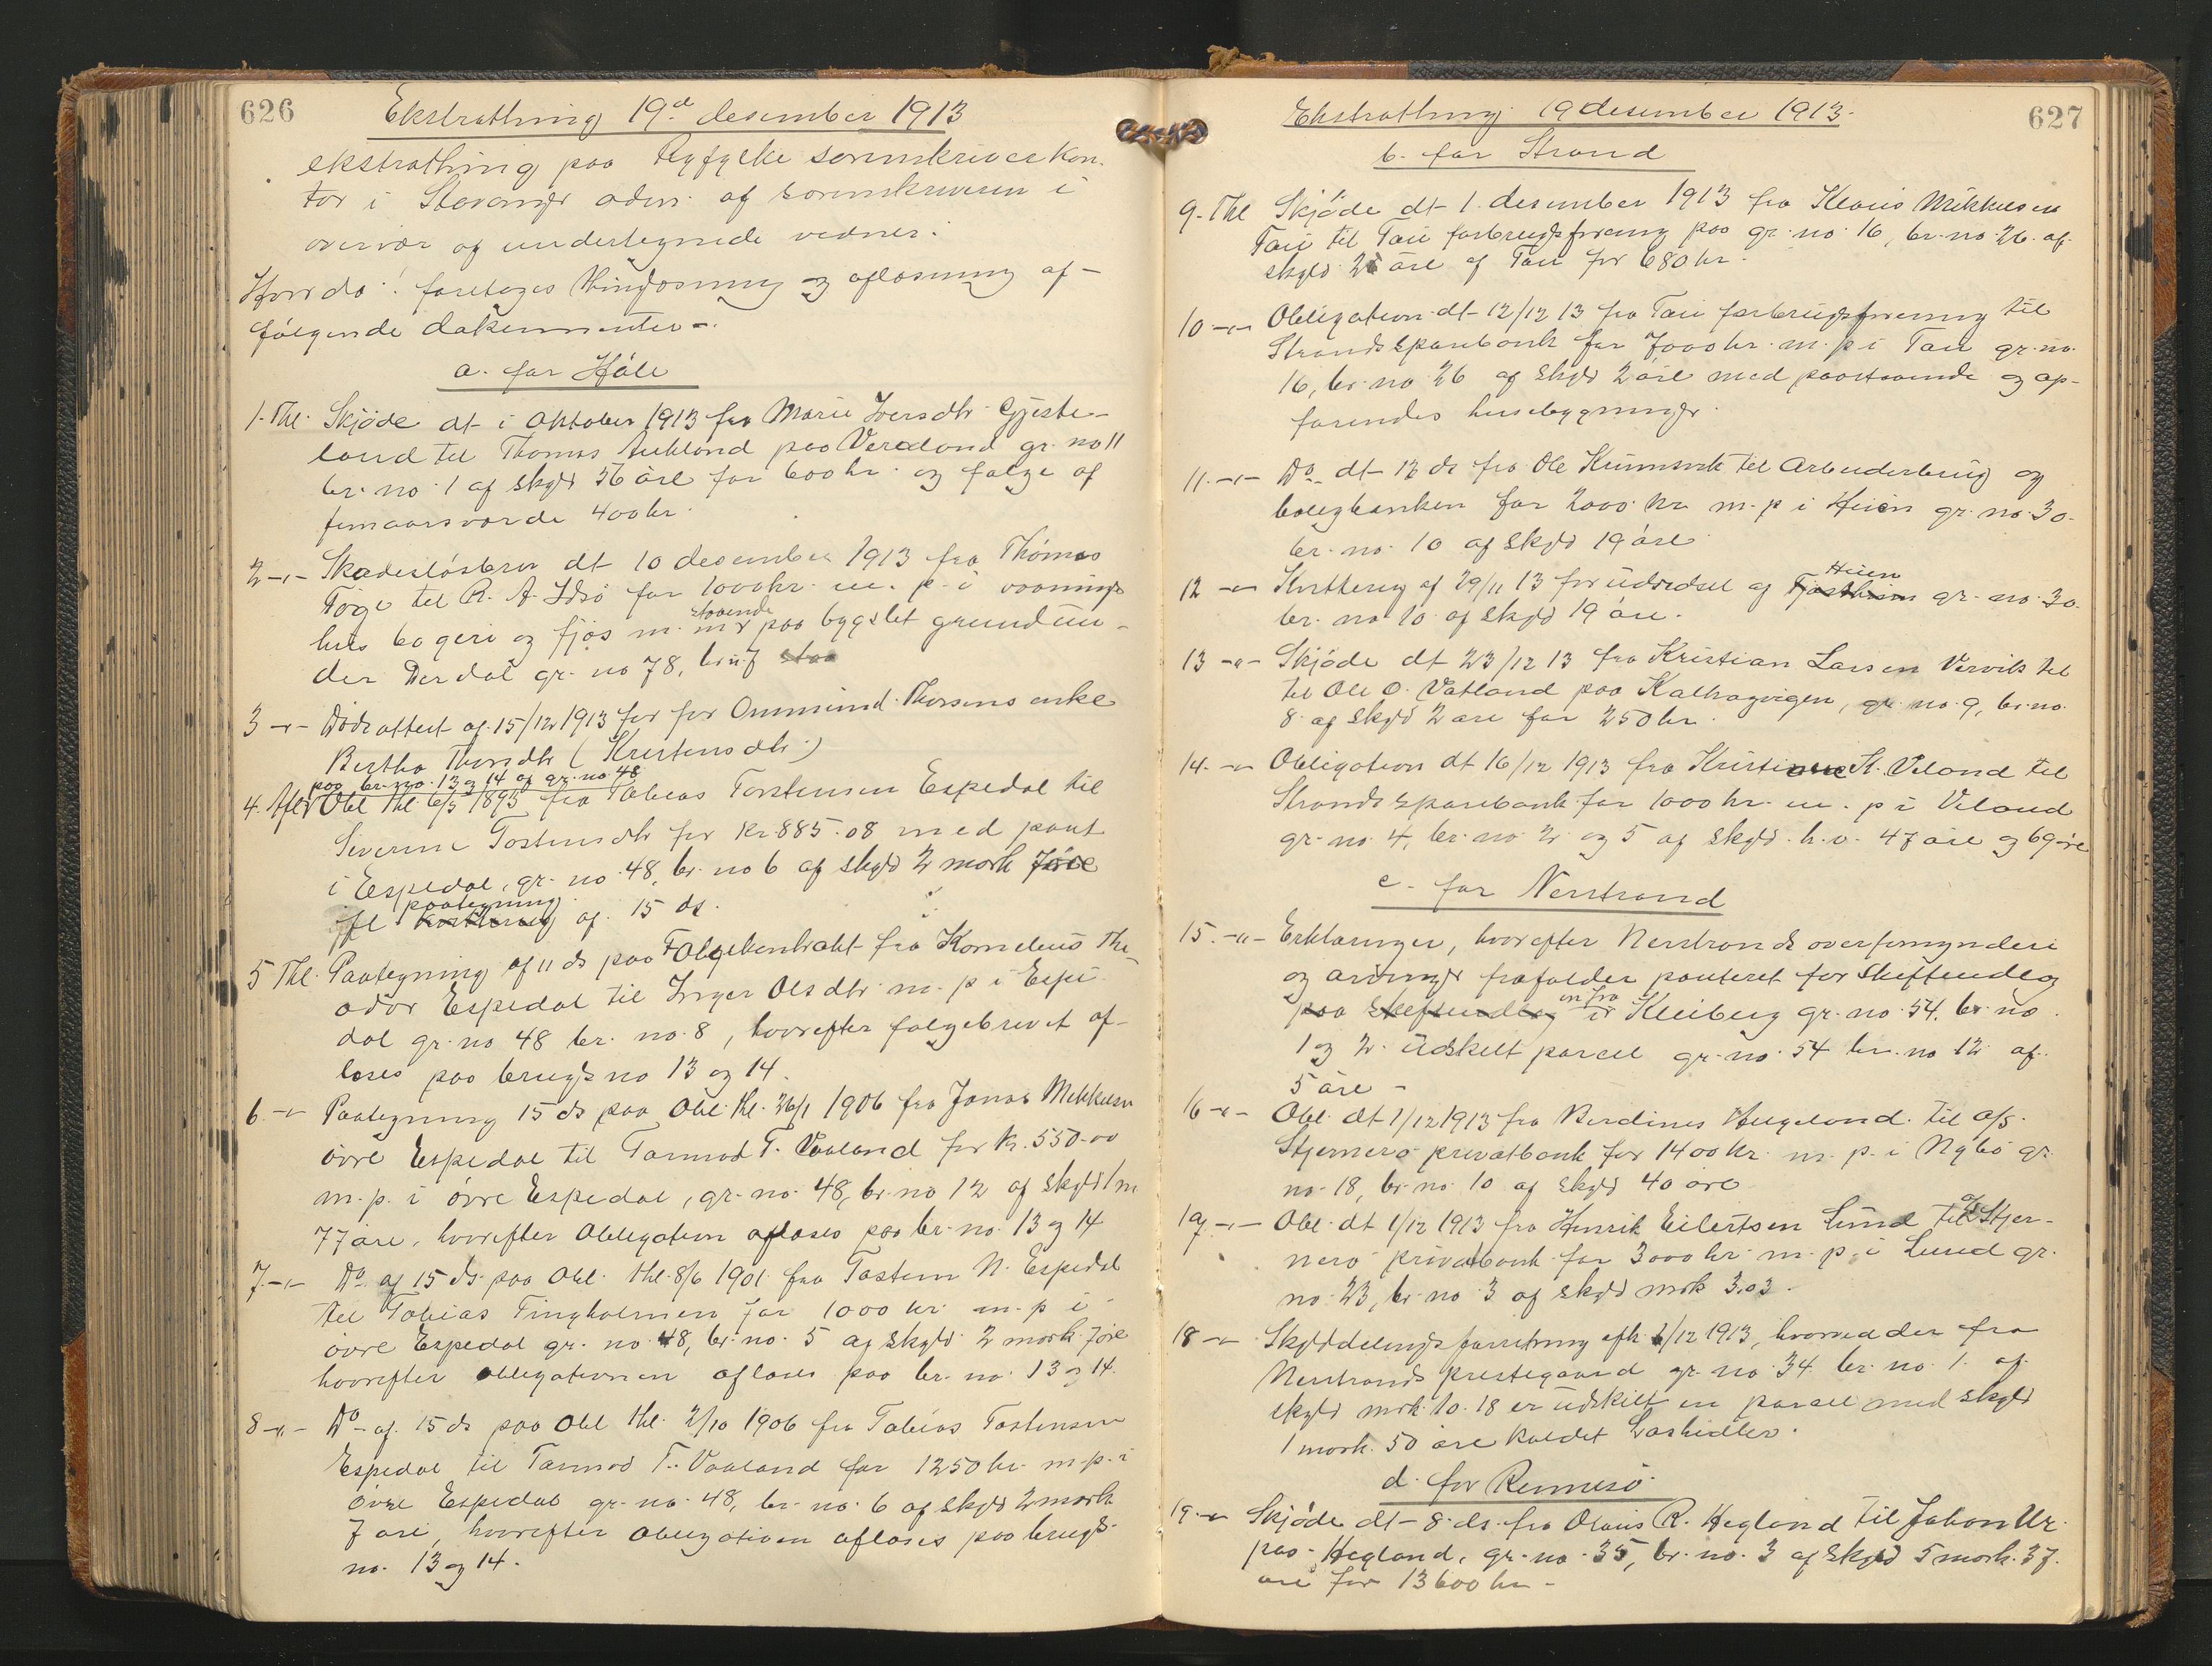 626
Ekstrathing 19de desember 1913
ekstrathing paa Ryfylke sorenskriverkon-
tor i Stavanger adm. af sorenskriveren i
overvær og undertegnede vidner.
Hvorda: foretages thinglæsning og aflæsning af
følgende dokumenter -.
a. for Høle
1. Thl. Skjøde dt i Oktober 1913 fra Marie Iversdtr Gjeste-
land til Thomas Aukland paa Veraland gr. no 11
br. no. 1 af skyld 36 øre for 600 kr. og følge af
femaarsværde 400 kr.
2 -"- Skadesløsbrev dt 10 desember 1913 fra Thomas
Tøge til R. A. Idsø for 1000 kr. m. p. i vaanings
hus bageri og fjøs m. m. staaende paa bygslet grund un-
der Dirdal gr. no 78, br. no 7 staa
3 -"- Dødsattest af 15/12 1913 for Ommund Thorsens enke
Bertha Thorsdtr (Kristensdtr.)
paa br. no. 13 og 14 af gr. no 48
4. Aflr Obl thl. 6/5 1895 fra Tobias Tostensen Espedal til
Severine Tostensdtr for kr 885.08 med pant
i Espedal, gr. no. 48, br. no 6 af skyld 2 mark 7 øre
paategning
ifl. kvittering af. 15 ds.
5 Thl. Paategning af 11 ds paa Følgekontrakt fra Kornelius The-
odor Espedal til Inger Olsdtr m. p i Espe-
dal gr. no 48 br. no. 8, hvorefter følgebrevet af-
løses paa brugs no 13 og 14.
6 -"- Paategning 15 ds paa Obl. thl. 26/1 1906 fra Jonas Mikkelsen
øvre Espedal til Tarmod T. Vaaland for kr. 550.00
m. p. i øvre Espedal, gr. no. 48, br. no 12 af skyld 1 m
77 øre, hvorefter Obligation afløses paa br. no. 13 og 14
7 -"- Do af 15 ds. paa Obl. thl. 8/6 1901 fra Tosten N. Espedal
til Tobias Tingholmen for 1000 kr. m. p i
øvre Espedal gr. no 48, br. no. 5 af skyld 2 mark 7 øre
hvorefter obligationen afløses paa br. no. 13 og 14.
8 -"- Do - af. 15 ds paa Obl thl. 2/10 1906 fra Tobias Tostensen
Espedal til Tarmod T. Vaaland for 1250 kr. m. p. i
øvre Espedal gr. no. 48, br. no. 6 af skyld 2 mark
7 øre, hvorefter obligationen afløses paa brugs-
no. 13 og 14.
627
Ekstrathing 19 desember 1913.
b. for Strand
9. Thl Skjøde dt 1. desember 1913 fra Klaus Mikkelsen
Tau til Tau forbrugsforening paa gr. no. 16, br. no. 26. af
skyld 2 øre af Tau for 680 kr.
10 -"- Obligation dt 12/12 13 fra Tau forbrugsforening til
Strands sparebank for 7000 kr. m. p i Tau gr. no.
16, br. no 26 af skyld 2 øre med paastaaende og op-
førendes husebygninger.
11. -"- Do dt 13 ds fra Ole Krumsvik til Arbeiderbrug og
boligbanken for 2000 kr m. p i Heien gr. no. 30.
br. no. 10 af skyld 19 øre.
Heien
12 -"- Kvittering af 29/11 13 for udredsel af gr. no. 30.
br. no 10 af skyld 19 øre.
13 -"- Skjøde dt 23/12 13 fra Kristian Larsen Vervik til
til Ole O. Vatland paa Kalhagvigen, gr. no. 9, br. no.
8. af skyld 2 øre for 250 kr.
14. -"- Obligation dt 16/12 1913 fra Kristiane A. Veland til
Strands sparebank for 1000 kr. m. p i Veland
gr. no. 4, br. no. 2 og 5 af skyld. h. v. 47 øre og 69 øre
c. for Nerstrand
15. -"- Erklæringer, hvorefter Nerstrands overformynderi
og arvinger frafalder panteret for Skeftendeg
paa Skeftendeg en fra Kleiberg gr. no. 54. br. no.
1 og 2. udskilt parcel gr. no. 54 br. no 12 af
5 øre -
16 -"- Obl. dt 1/12 1913 fra Berdines Haugeland til a/s.
Stjernerø privatbank for 1400 kr. m. p. i Nybø gr.
no. 18, br. no. 10 af skyld 40 øre
17. -"- Obl. dt 1/12 1913 fra Henrik Eilertsen Lund til a/s Stjer-
nerø privatbank for 3000 kr. m. p. i Lund gr.
no. 23, br. no. 3 af skyld mrk 3.03.
18 -"- Skylddelingsforretning afh. /12 1913, hvorved der fra
Nerstrands prestegaard gr. no. 34. br. no. 1. af
skyld mrk. 10.18 er udskilt en parcel med skyld
1 mark. 50 øre kaldet
d. for Rennesø.
19. -"- Skjøde dt - 8. ds. fra Olaus R. Hegland til Johan Ur.
paa Hegland, gr. no. 35, br. no. 3 af skyld 5 mark. 37.
øre for 13600 kr -